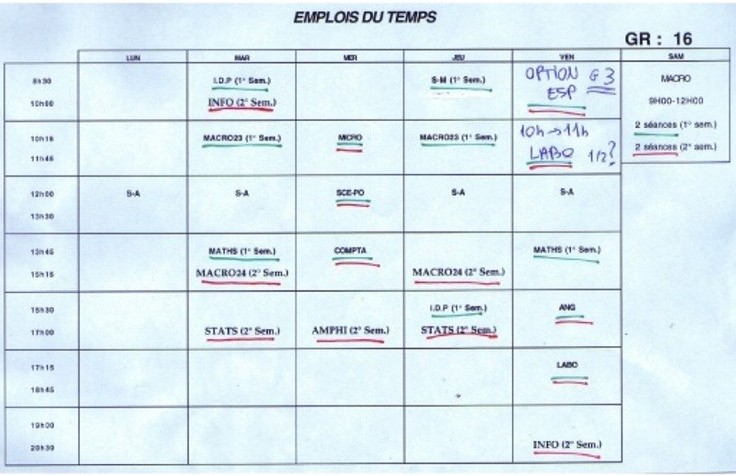 EMPLOIS DU TEMPS
GR : 16
LUN MAR MER JEU VEN SAM
8h30 I.D.P (1° Sem.) S-M (1° Sem.) OPTION G3 MACRO
10h00 INFO (2° Sem.) ESP 9H00-12H00
10h15 MACRO23 (1° Sem.) MICRO MACRO23 (1° Sem.) 10h→11h 2 séances (1° sem.)
11h45 LABO 1/2? 2 séances (2° sem.)
12h00 S-A S-A SCE-PO S-A S-A
13h30
13h45 MATHS (1° Sem.) COMPTA MATHS (1° Sem.)
15h15 MACRO24 (2° Sem.) MACRO24 (2° Sem.)
15h30 I.D.P (1° Sem.) ANG
17h00 STATS (2° Sem.) AMPHI (2° Sem.) STATS (2° Sem.)
17h15 LABO
18h45
19h00
20h30 INFO (2° Sem.)